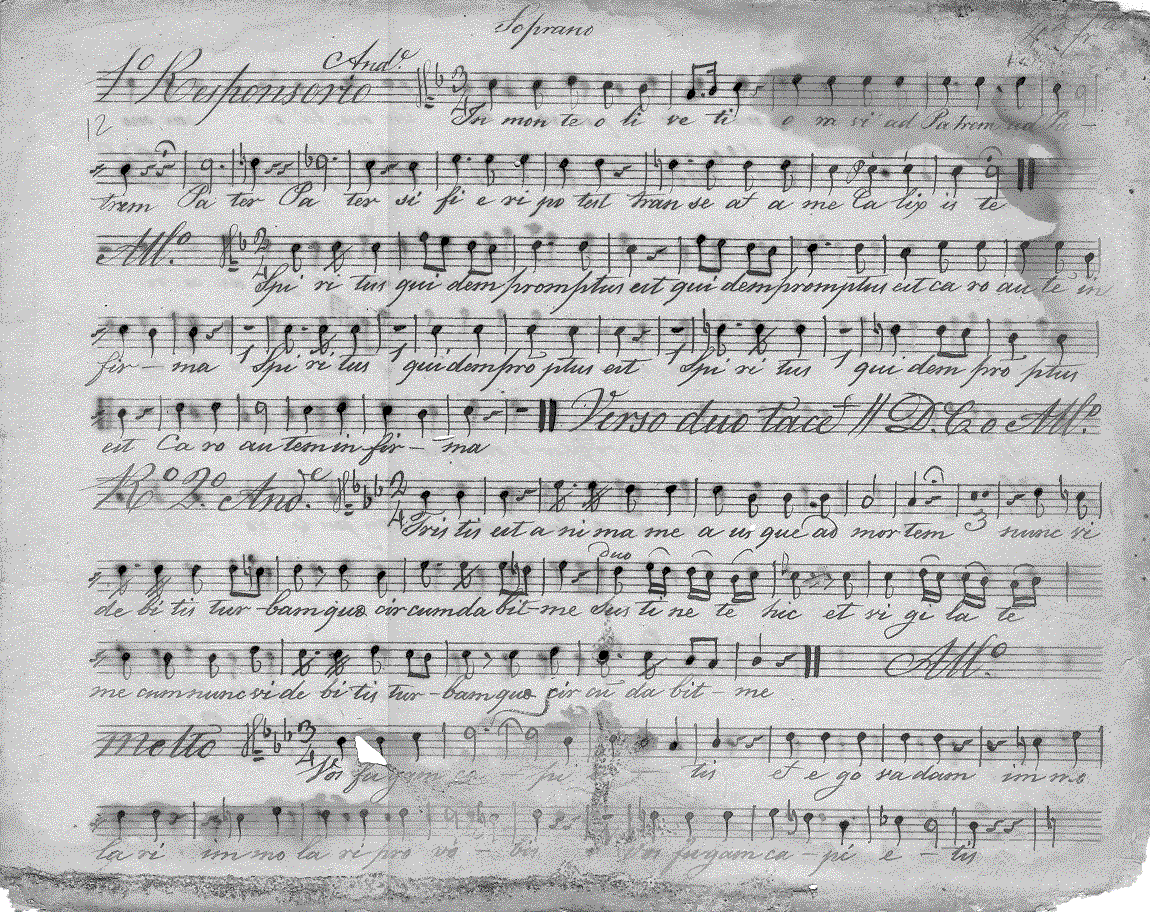 Soprano
1º Responsorio Andᵉ.
12
In mon te o li ve ti o ra vi ad Patrem ad Pa -
trem Pa ter Pa ter si fi e ri po test tran se at a me Ca lix is te
All.º
Spi ri tus qui dem promptus est qui dem promptus est ca ro au te in
fir - ma 1 Spi ri tus 1 qui dem pro ptus est 1 Spi ri tus 1 qui dem pro ptus
est Ca ro au tem in fir - ma Verso duo tacet // D. C. o All.º
R.º 2.º And.e
Tris tis est a ni ma me a us que ad mor tem 3 nunc vi
Duo
de bi tis tur - bam quæ cir cum da bit - me Sus ti ne te hic et vi gi la te
me cum nunc vi de bi tis tur - bam quæ cir cu da bit - me All.º
molto
Vos fu gam ca - pi - - tis et e go va dam im mo
la ri im mo la ri pro vo - bis Vos fu gam ca - pi e - tis